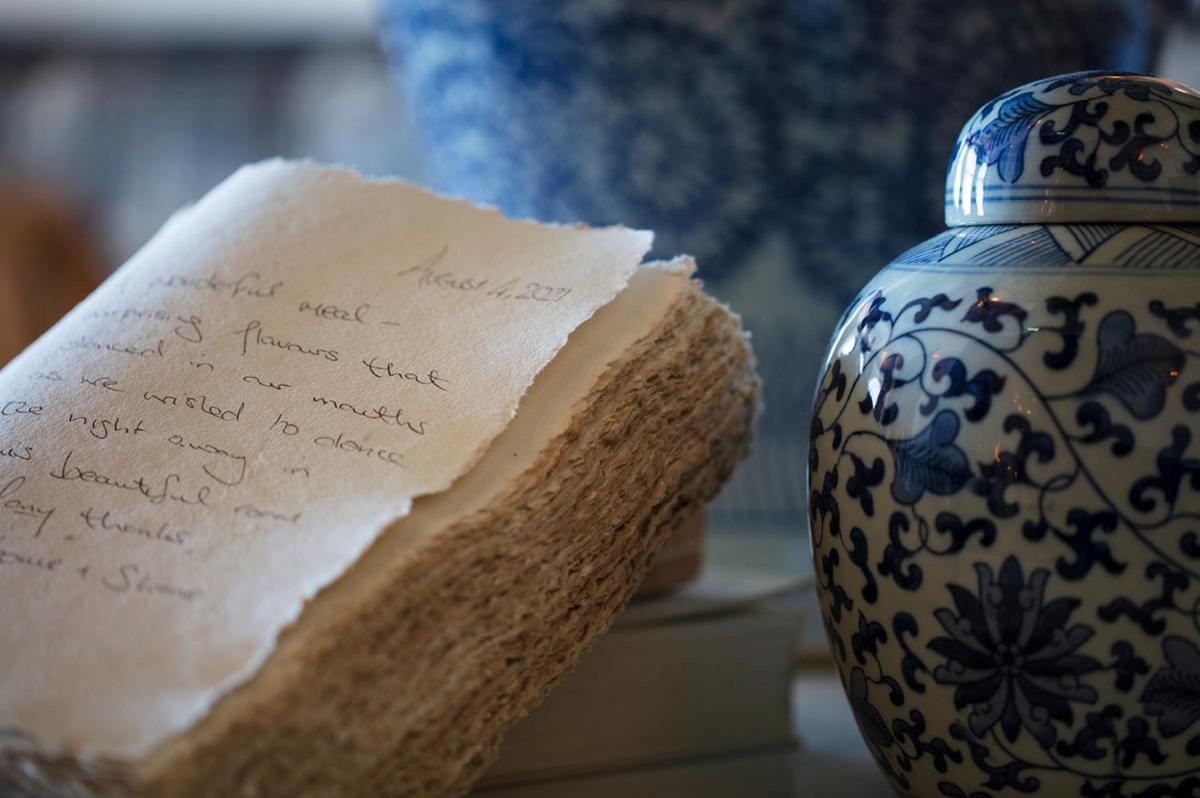 August 4, 2021
wonderful meal -
surprising flavours that
danced in our mouths
as we wished to dance
the night away in
this beautiful room
Many thanks
+ Shane